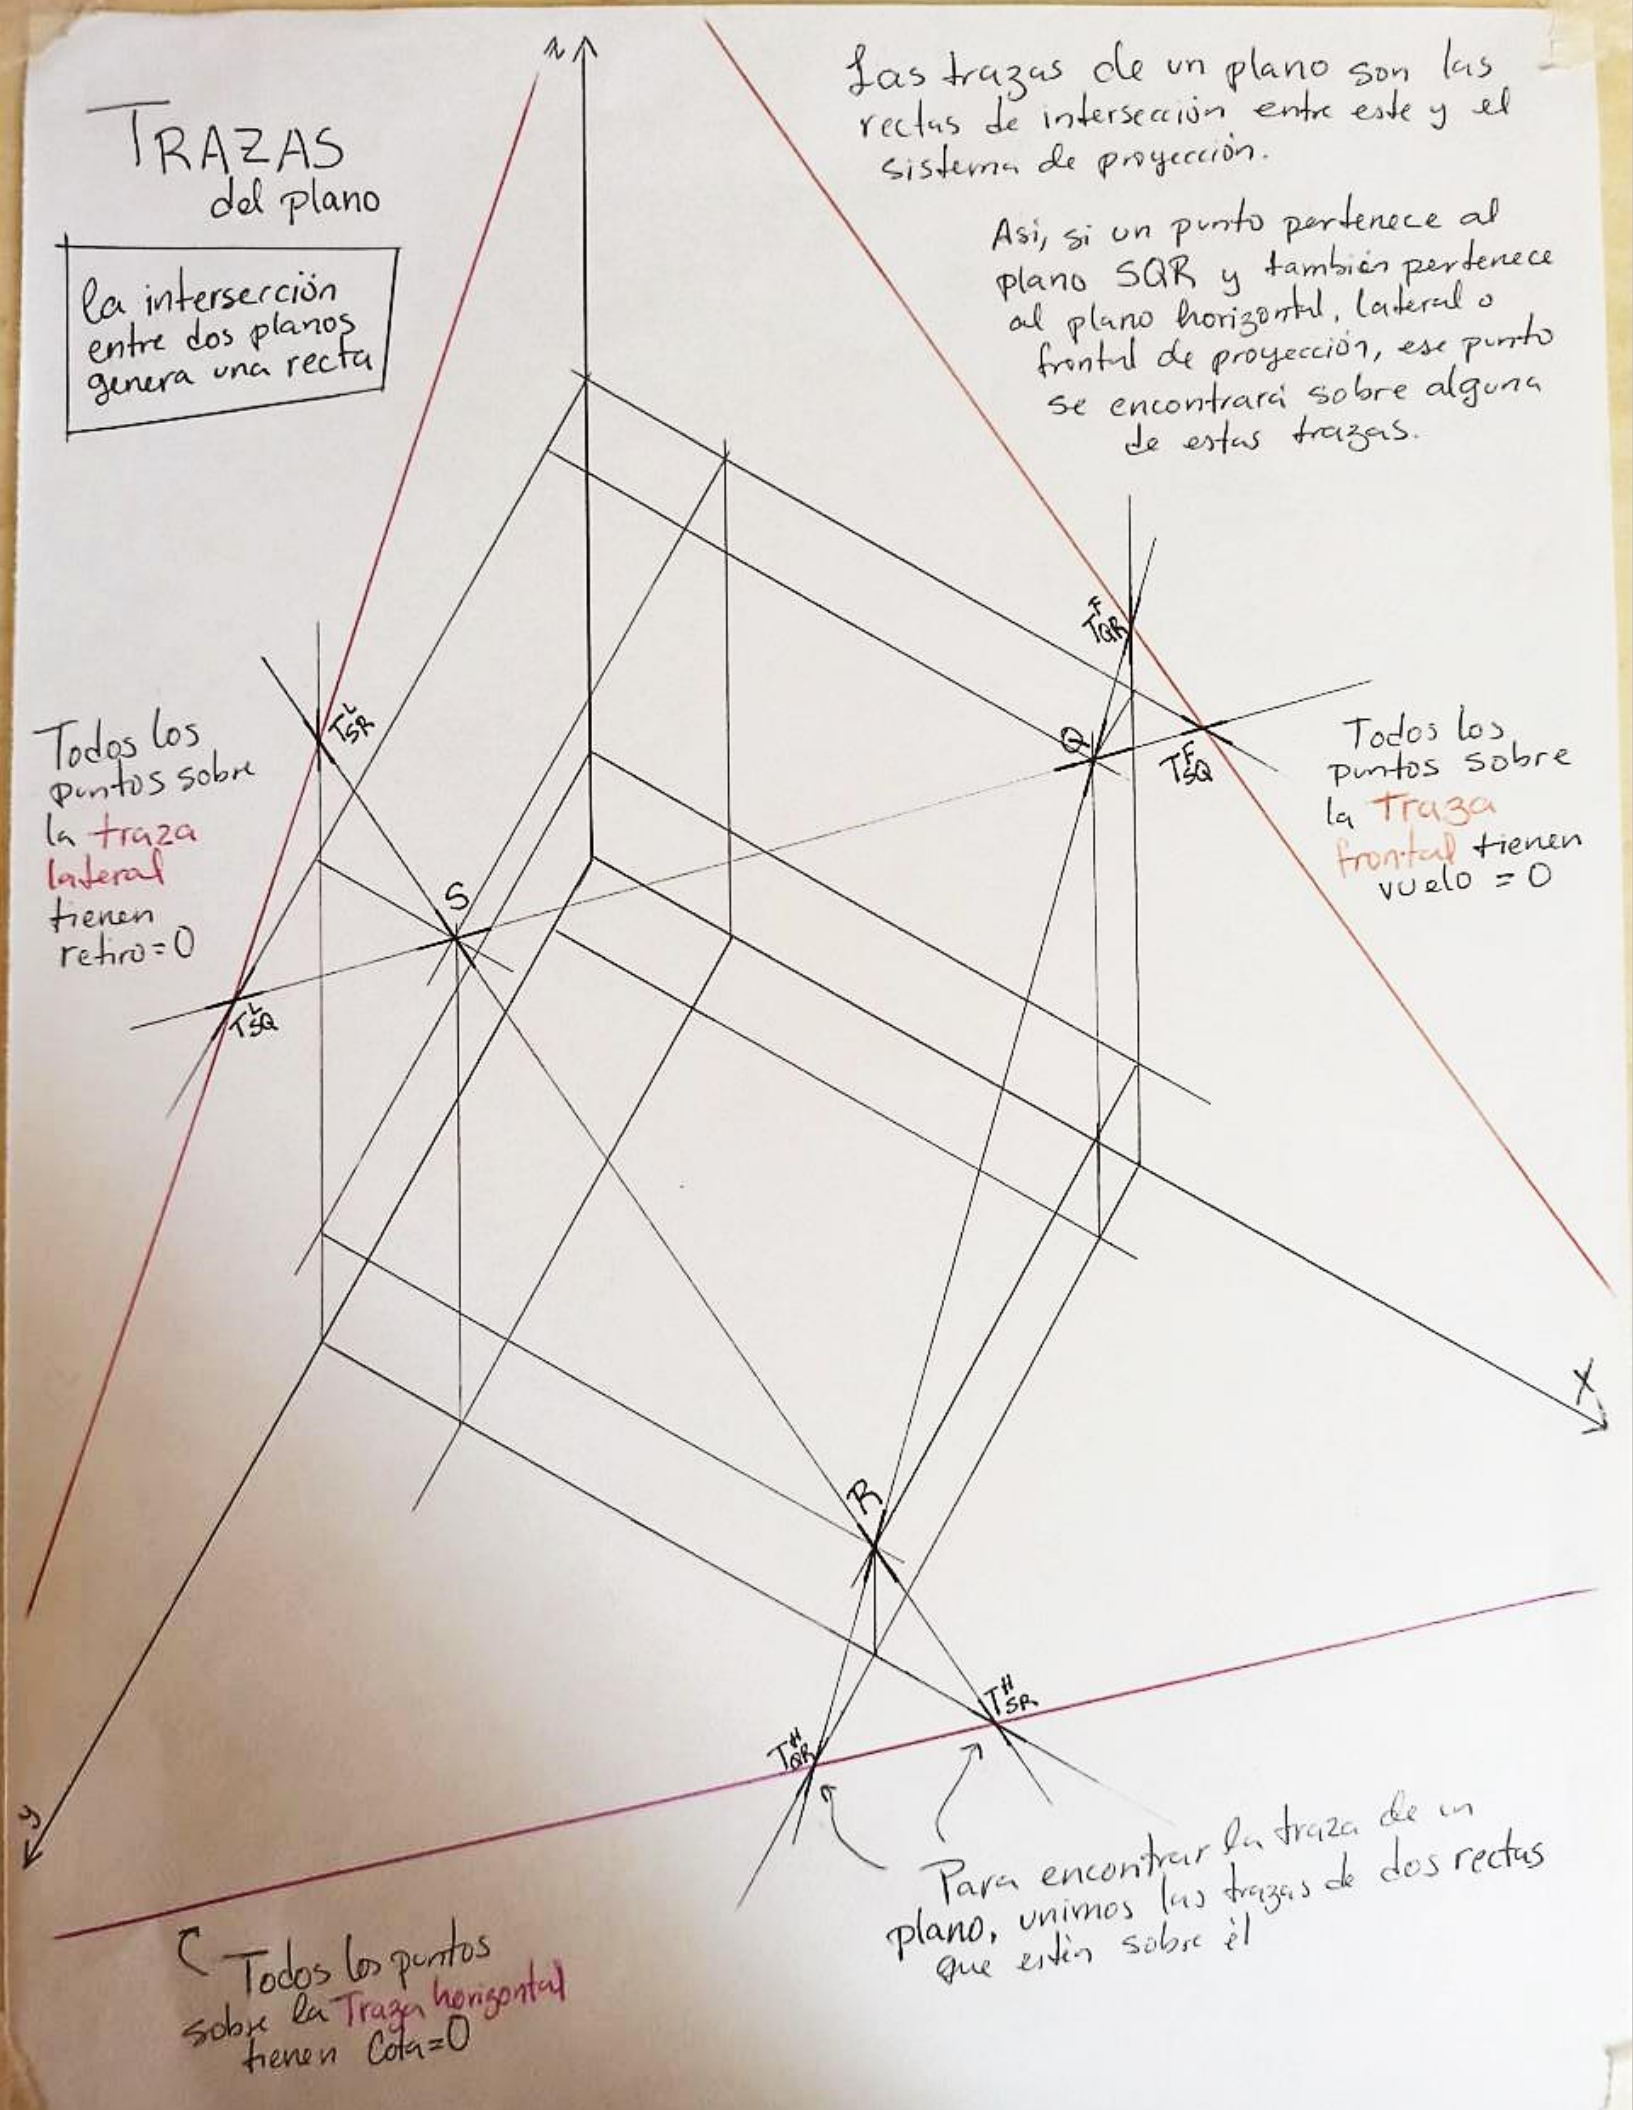 TRAZAS
del plano
la intersección
entre dos planos
genera una recta
Las trazas de un plano son las
rectas de intersección entre este y el
sistema de proyección.
Asi, si un punto pertenece al
plano SQR y también pertenece
al plano horizontal, lateral o
frontal de proyección, ese punto
se encontrará sobre alguna
de estas trazas.
z
T^F_QR
Q
T^F_SQ
T^L_SR
S
T^L_SQ
Todos los
puntos sobre
la traza
lateral
tienen
retiro=0
Todos los
puntos sobre
la Traza
frontal tienen
vuelo = 0
X
R
T^H_SR
T^H_QR
y
Para encontrar la traza de un
plano, unimos las trazas de dos rectas
que estén sobre él
Todos los puntos
sobre la Traza horizontal
tienen Cota=0